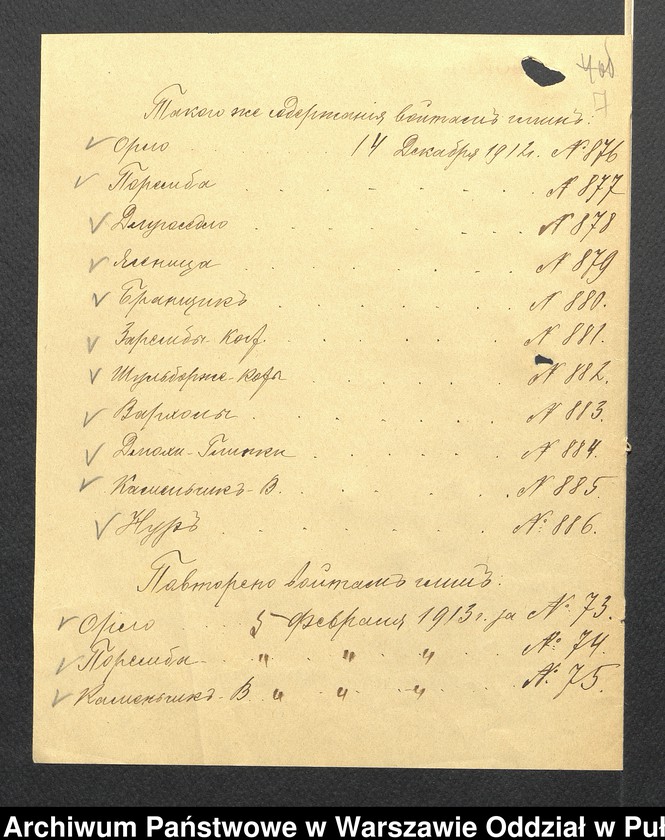 4об
7
Такого же содержанія войтамъ гминъ:
Орло . . . 14 Декабря 1912г. № 876
Поремба . . . . . № 877
Длугоседло . . . . . № 878
Ясеница . . . . . № 879
Бранщикъ . . . . . № 880.
Зарембы-Косц. . . . . № 881.
Шульборже-Косцы . . . . № 882.
Вархолы . . . . . № 883.
Дмохи-Глинки . . . . № 884.
Каменьчикъ-В. . . . . № 885.
Нуръ . . . . . № 886.
Повторено войтамъ гминъ.
Орло . . 5 Февраля 1913г. за № 73.
Поремба . . " . . " . . " . . № 74.
Каменьчикъ-В. " . . " . . " . . № 75.
Archiwum Państwowe w Warszawie Oddział w Puł